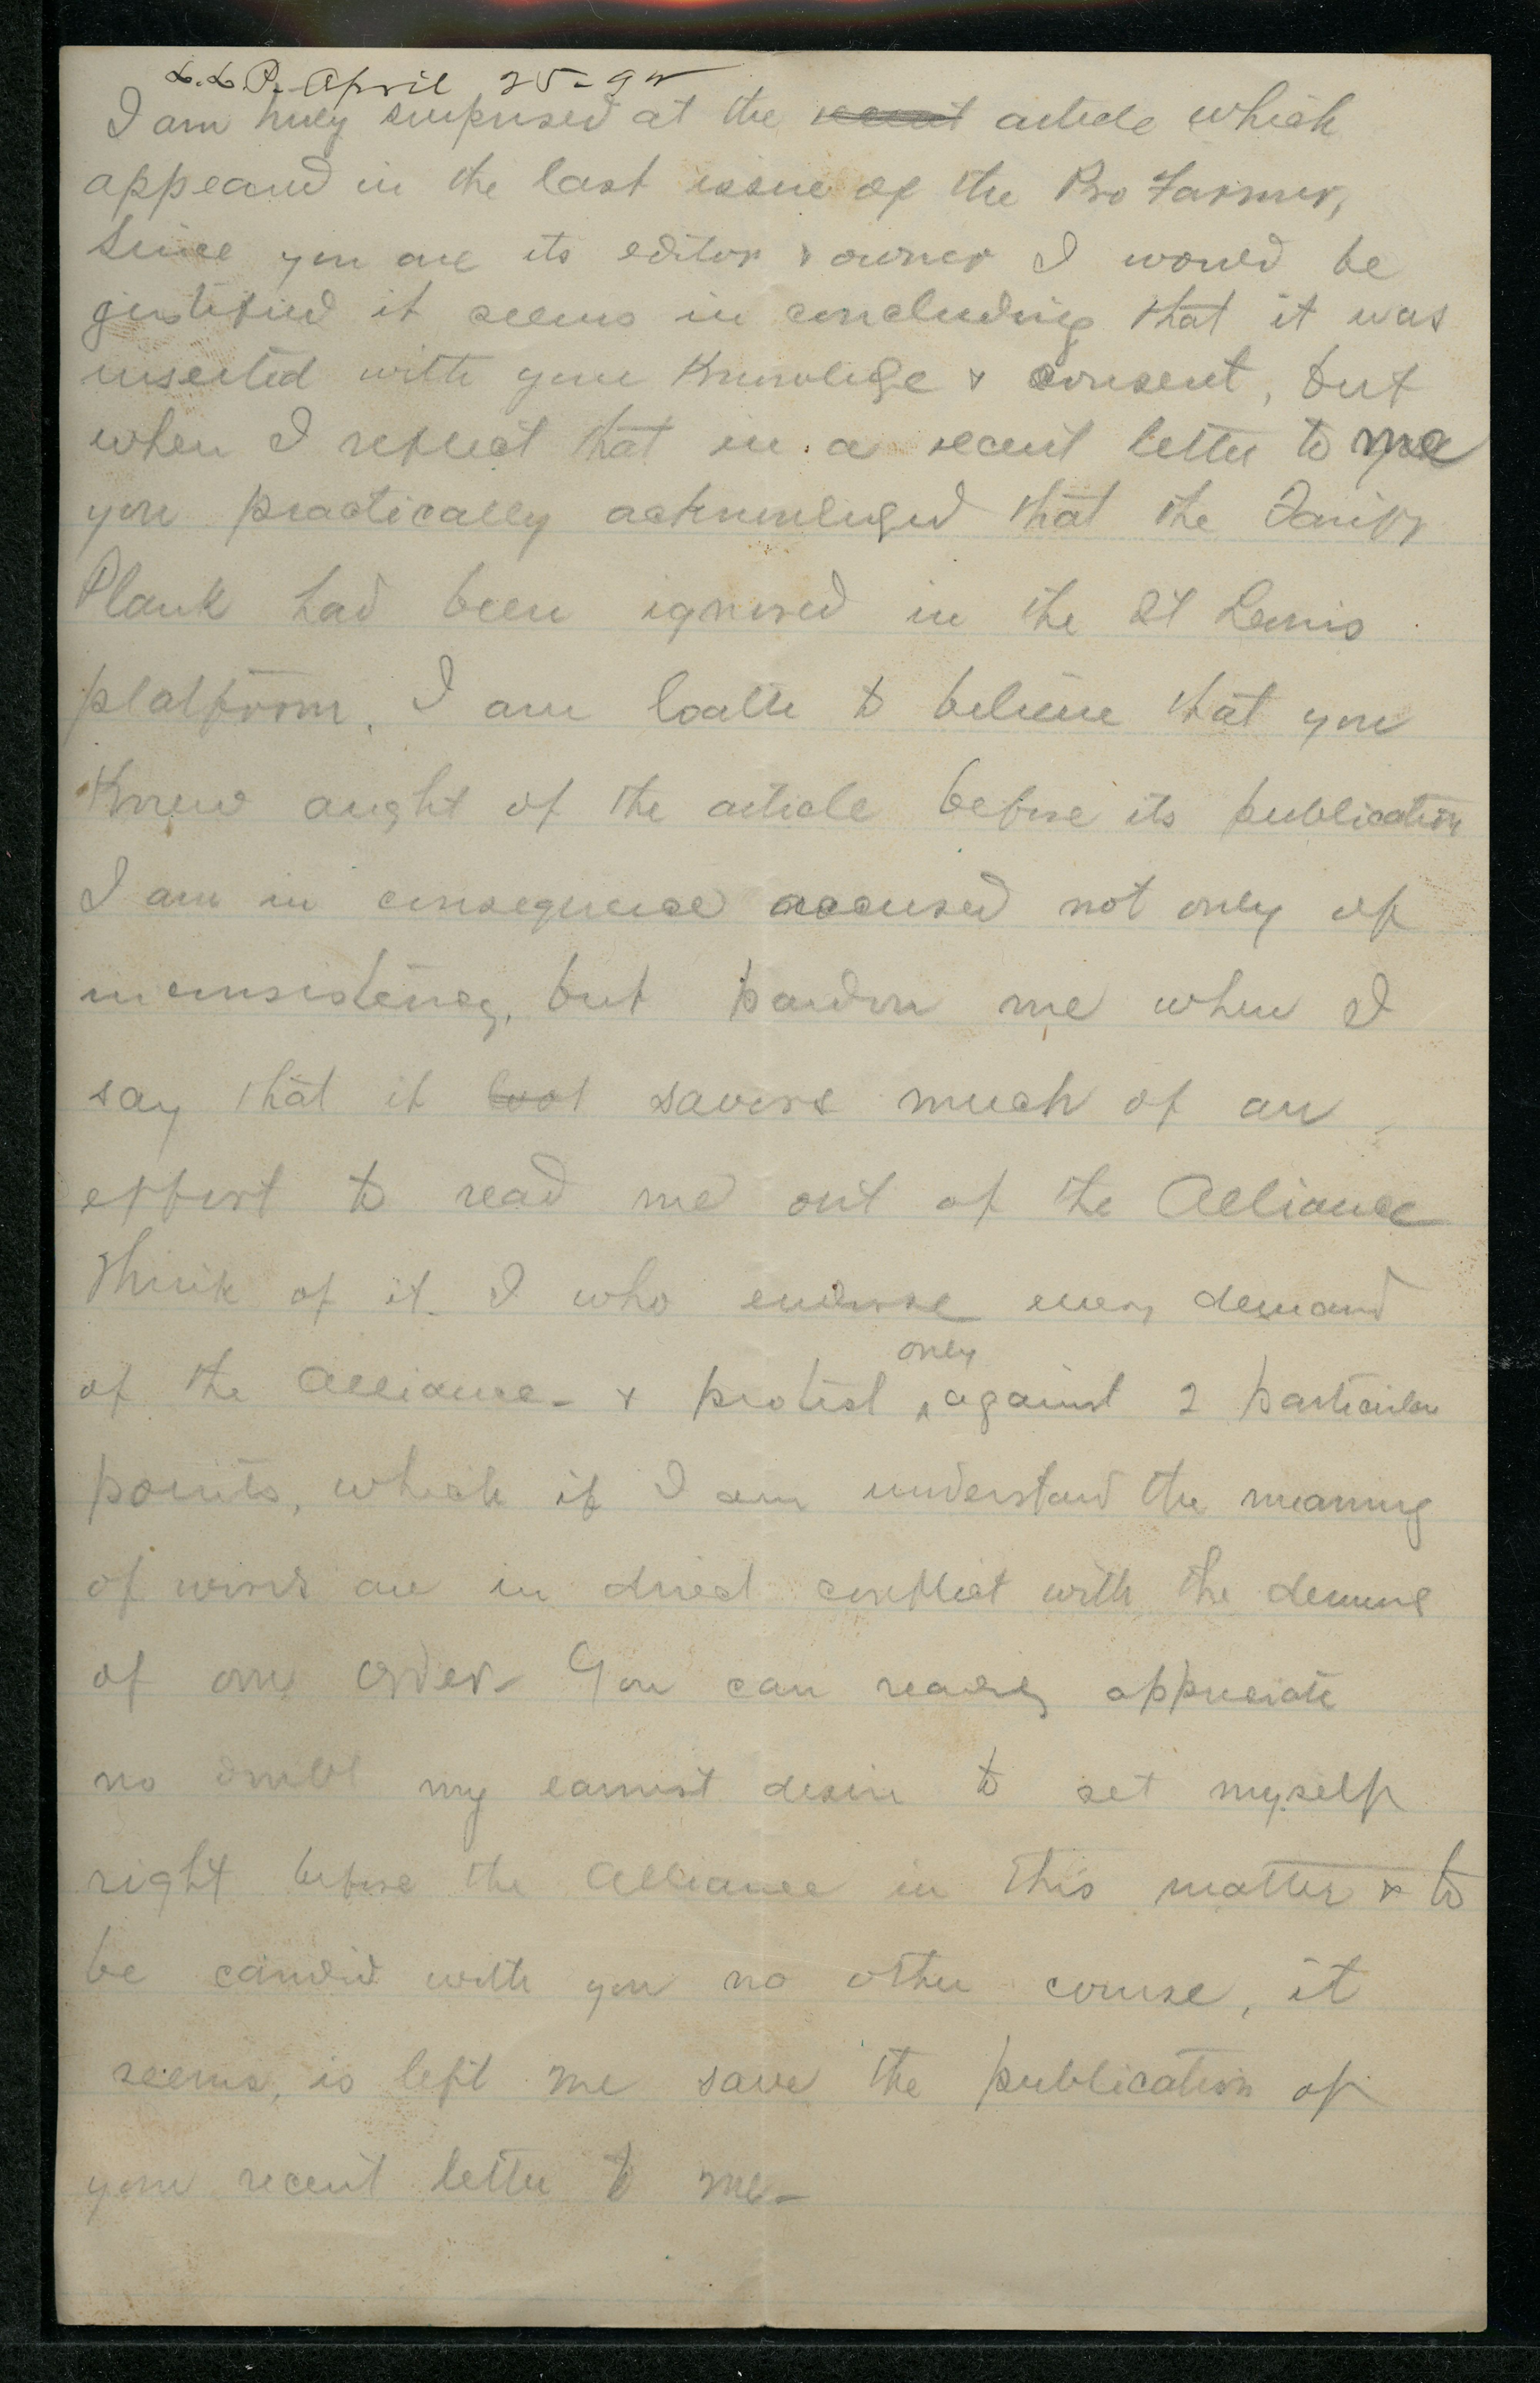 L.L.P. April 25-92
I am truly surprised at the recent article which
appeared in the last issue of the Pro Farmer,
Since you are its editor & owner I would be
justified it seems in concluding that it was
inserted with your knowledge & consent, but
when I reflect that in a recent letter to me
you practically acknowledged that the Tariff
Plank had been ignored in the St Louis
platform, I am loath to believe that you
knew aught of the article before its publication
I am in consequence accused not only of
inconsistency, but pardon me when I
say that it savors much of an
effort to read me out of the Alliance
Think of it I who endorse every demand
of the Alliance - & protest only against 2 particular
points, which if I understand the meaning
of words are in direct conflict with the demand
of our order - You can readily appreciate
no doubt my earnest desire to set myself
right before the Alliance in this matter & to
be candid with you no other course, it
seems, is left me save the publication of
your recent letter to me -